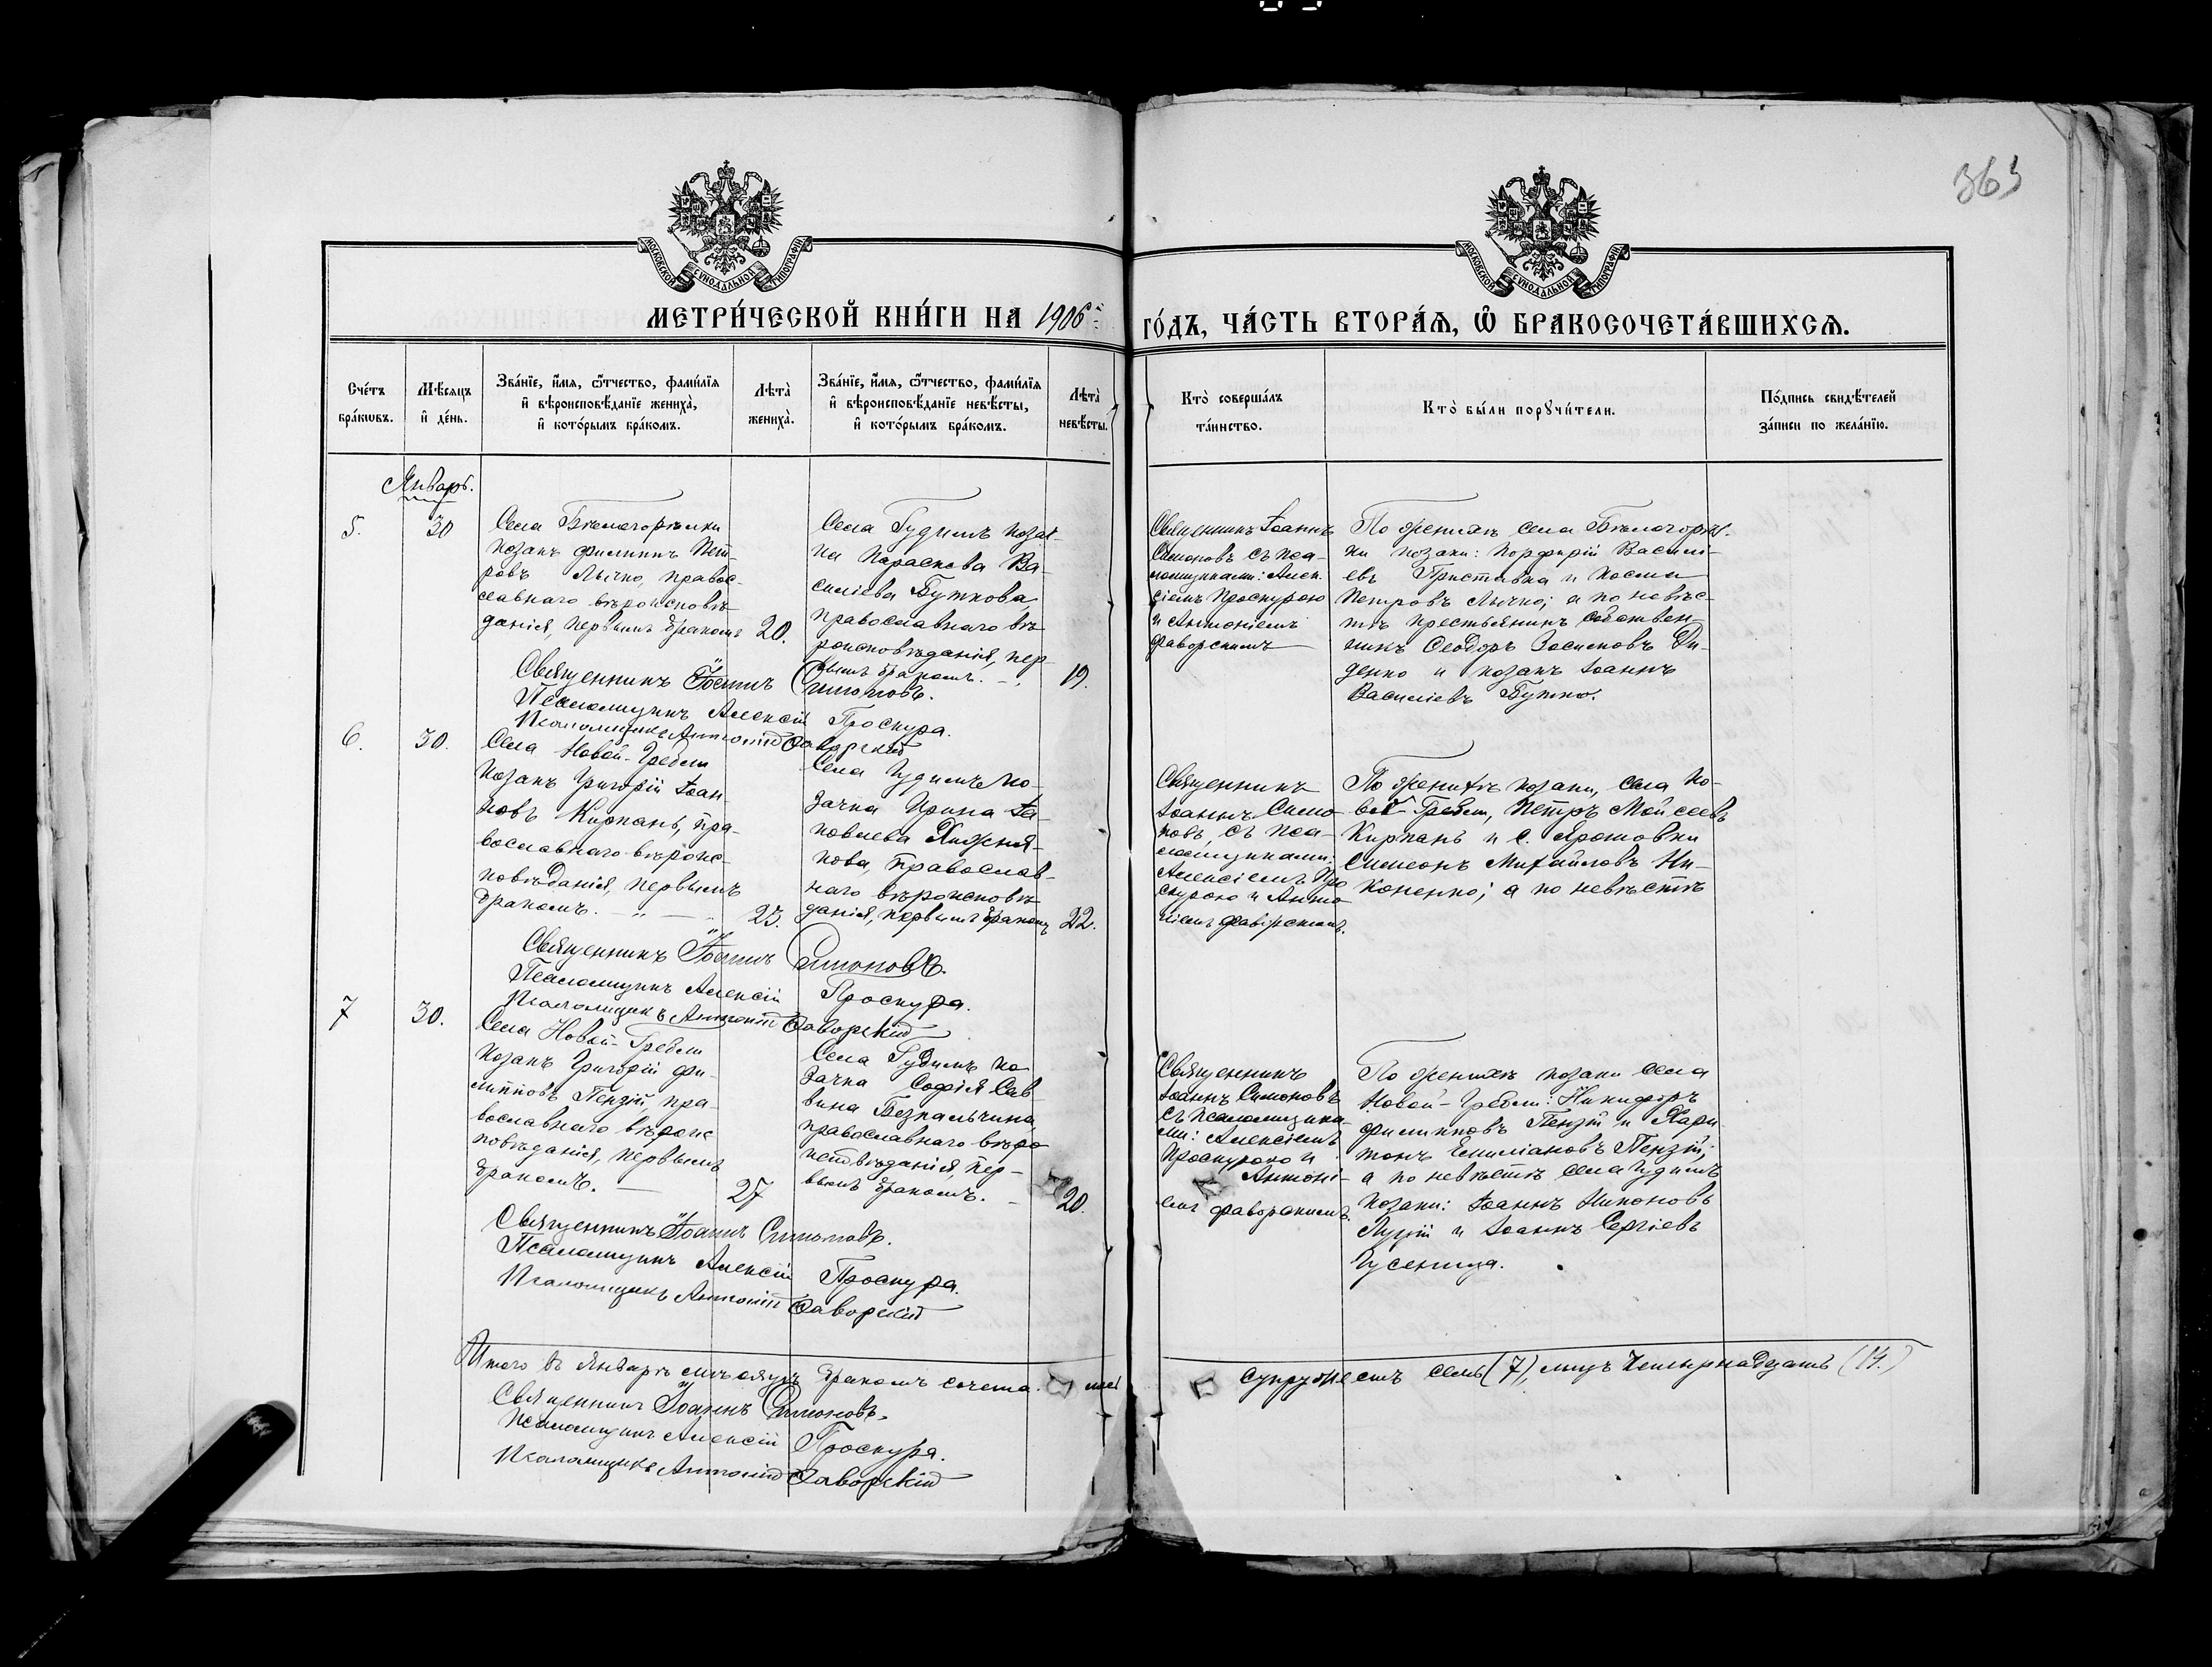 363
МОСКОВСКОЙ СѴНОДАЛЬНОЙ ТИПОГРАФІИ
МОСКОВСКОЙ СѴНОДАЛЬНОЙ ТИПОГРАФІИ
МЕТРИ́ЧЕСКОЙ КНИ́ГИ НА 1906й
ГО́ДЪ, ЧА́СТЬ ВТОРА́Ѧ, Ѽ БРАКОСОЧЕТА́ВШИХСѦ.
Сче́тъ
бра́кѡвъ.
Мѣ́сяцъ
и҆ де́нь.
Зва́нїе, и҆́мѧ, ѻ҆́тчество, фами́лїѧ
и҆ вѣроисповѣ́данїе жениха̀,
и҆ кото́рымъ бра́комъ.
Лѣта̀
жениха̀.
Зва́нїе, и҆́мѧ, ѻ҆́тчество, фами́лїѧ
и҆ вѣроисповѣ́данїе невѣ́сты,
и҆ кото́рымъ бра́комъ.
Лѣта̀
невѣ́сты.
Кто̀ соверша́лъ
та́инство.
Кто̀ бы́ли порꙋчи́тели.
По́дпись свидѣ́телей
за́писи по жела́нїю.
Январь.
5.
30
Села Бѣлогорѣлки
козакъ Филиппъ Пет-
ровъ Лычко, правос-
лавнаго вѣроисповѣ-
данія, первымъ бракомъ
20.
Села Гудимъ козач
ка Параскева Ва-
силіева Буткова,
православнаго вѣ-
роисповѣданія, пер-
вымъ бракомъ.
19.
Священникъ Іоаннъ
Симоновъ съ пса-
ломщиками: Алек-
сіемъ Проскурою
и Антоніемъ
Фаворскимъ
По женихѣ села Бѣлогорѣл-
ки козаки: Порфирій Василі-
евъ Приставка и Косма
Петровъ Лычко; а по невѣс-
тѣ крестьянинъ собствен-
никъ Ѳеодоръ Ди-
денко и козакъ Іоаннъ
Василіевъ Бутко.
Священникъ Іоаннъ Симоновъ.
Псаломщикъ Алексій Проскура.
Псаломщикъ Антоній Фаворскій
6.
30.
Села Новой-Гребли
козакъ Григорій Іоан-
новъ Кирпань, пра-
вославнаго вѣроис-
повѣданія, первымъ
бракомъ.
25.
Села Гудимъ ко-
зачка Ирина Іа-
ковлева Хижня-
кова, православ-
наго вѣроисповѣ
данія, первымъ бракомъ
22.
Священникъ
Іоаннъ Симо-
новъ, съ пса-
ломщиками:
Алексіемъ Про
скурою и Анто
ніемъ Фаворскимъ.
По женихѣ козаки, села Но-
вой-Гребли, Петръ Мойсеевъ
Кирпань и с. Яротовки
Симеонъ Михайловъ Ни-
коненко; а по невѣстѣ
Священникъ Іоаннъ Симоновъ.
Псаломщикъ Алексій Проскура.
Псаломщикъ Антоній Фаворскій
7
30.
Села Новой-Гребли
козакъ Григорій Фи-
липповъ Пензій, пра-
вославнаго вѣроис
повѣданія, первымъ
бракомъ.
27
Села Гудимъ ко
зачка Софія Сав
вина Безпальчина,
православнаго вѣро
исповѣданія, пер-
вымъ бракомъ.
20.
Священникъ
Іоаннъ Симоновъ
съ псаломщика-
ми: Алексіемъ
Проскурою и
Антоні-
емъ Фаворскимъ.
По женихѣ козаки села
Новой-Гребли: Никифоръ
Филипповъ Пензій и Хари
тонъ Емиліановъ Пензій;
а по невѣстѣ села Гудимъ
козаки: Іоаннъ Никоновъ
Луцій и Іоаннъ Сергіевъ
Гусеница.
Священникъ Іоаннъ Симоновъ.
Псаломщикъ Алексій Проскура.
Псаломщикъ Антоній Фаворскій
Итого въ Январѣ мѣсяцѣ бракомъ сочета
супружествъ семь (7), лицъ четырнадцать (14.)
Священникъ Іоаннъ Симоновъ.
Псаломщикъ Алексій Проскура.
Псаломщикъ Антоній Фаворскій